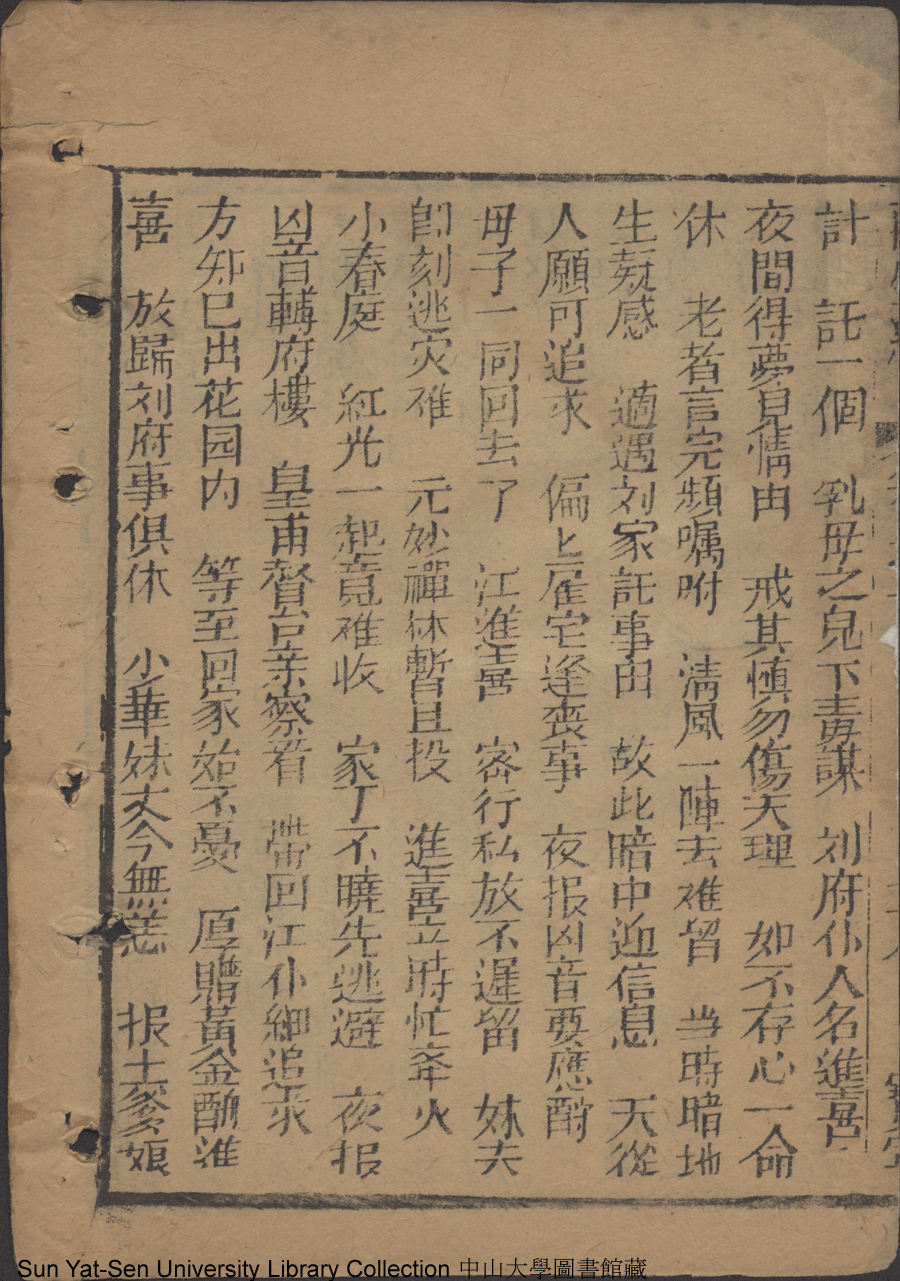 計 託一個 乳母之兒下毒謀 刘府仆人名進喜
夜間得夢見情由 戒其慎勿傷天理 如不存心一命
休 老者言完頻嘱咐 清風一陣去难留 当時暗地
生疑感 適遇刘家託事由 故此暗中迎信息 天從
人願可追求 偏上雇宅逢喪事 夜报凶音要應酧
母子一同回去了 江進喜 密行私放不遲留 妹夫
即刻逃灾难 元妙禪林暫且投 進喜立時忙举火
小春庭 紅光一起竟难收 家丁不曉先逃避 夜报
凶音轉府樓 皇甫督台亲察看 帶回江仆細追求
方知已出花园内 等至回家始不憂 厚贈黃金酧進
喜 放歸刘府事俱休 少華妹丈今無恙 报上爹娘
Sun Yat-Sen University Library Collection 中山大學圖書館藏